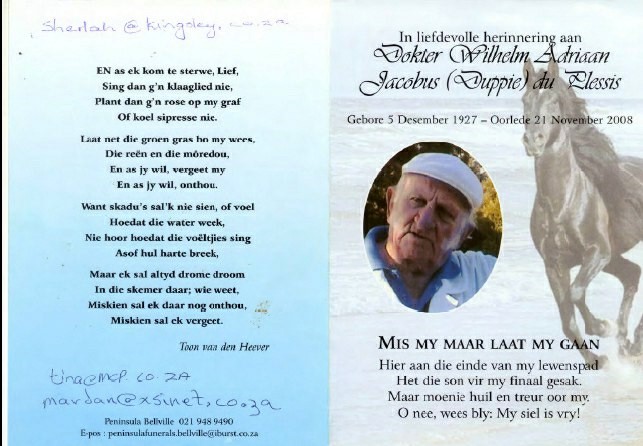 Sheilah@kingsley.co.za
EN as ek kom te sterwe, Lief,
Sing dan g'n klaaglied nie,
Plant dan g'n rose op my graf
Of koel sipresse nie.
Laat net die groen gras bo my wees,
Die reën en die môredou,
En as jy wil, vergeet my
En as jy wil, onthou.
Want skadu's sal'k nie sien, of voel
Hoedat die water week,
Nie hoor hoedat die voëltjies sing
Asof hul harte breek,
Maar ek sal altyd drome droom
In die skemer daar; wie weet,
Miskien sal ek daar nog onthou,
Miskien sal ek vergeet.
Toon van den Heever
tina@mcp.co.za
mardan@xsinet.co.za
Peninsula Bellville 021 948 9490
E-pos : peninsulafunerals.bellville@iburst.co.za
In liefdevolle herinnering aan
Dokter Wilhelm Adriaan
Jacobus (Duppie) du Plessis
Gebore 5 Desember 1927 – Oorlede 21 November 2008
MIS MY MAAR LAAT MY GAAN
Hier aan die einde van my lewenspad
Het die son vir my finaal gesak.
Maar moenie huil en treur oor my.
O nee, wees bly: My siel is vry!